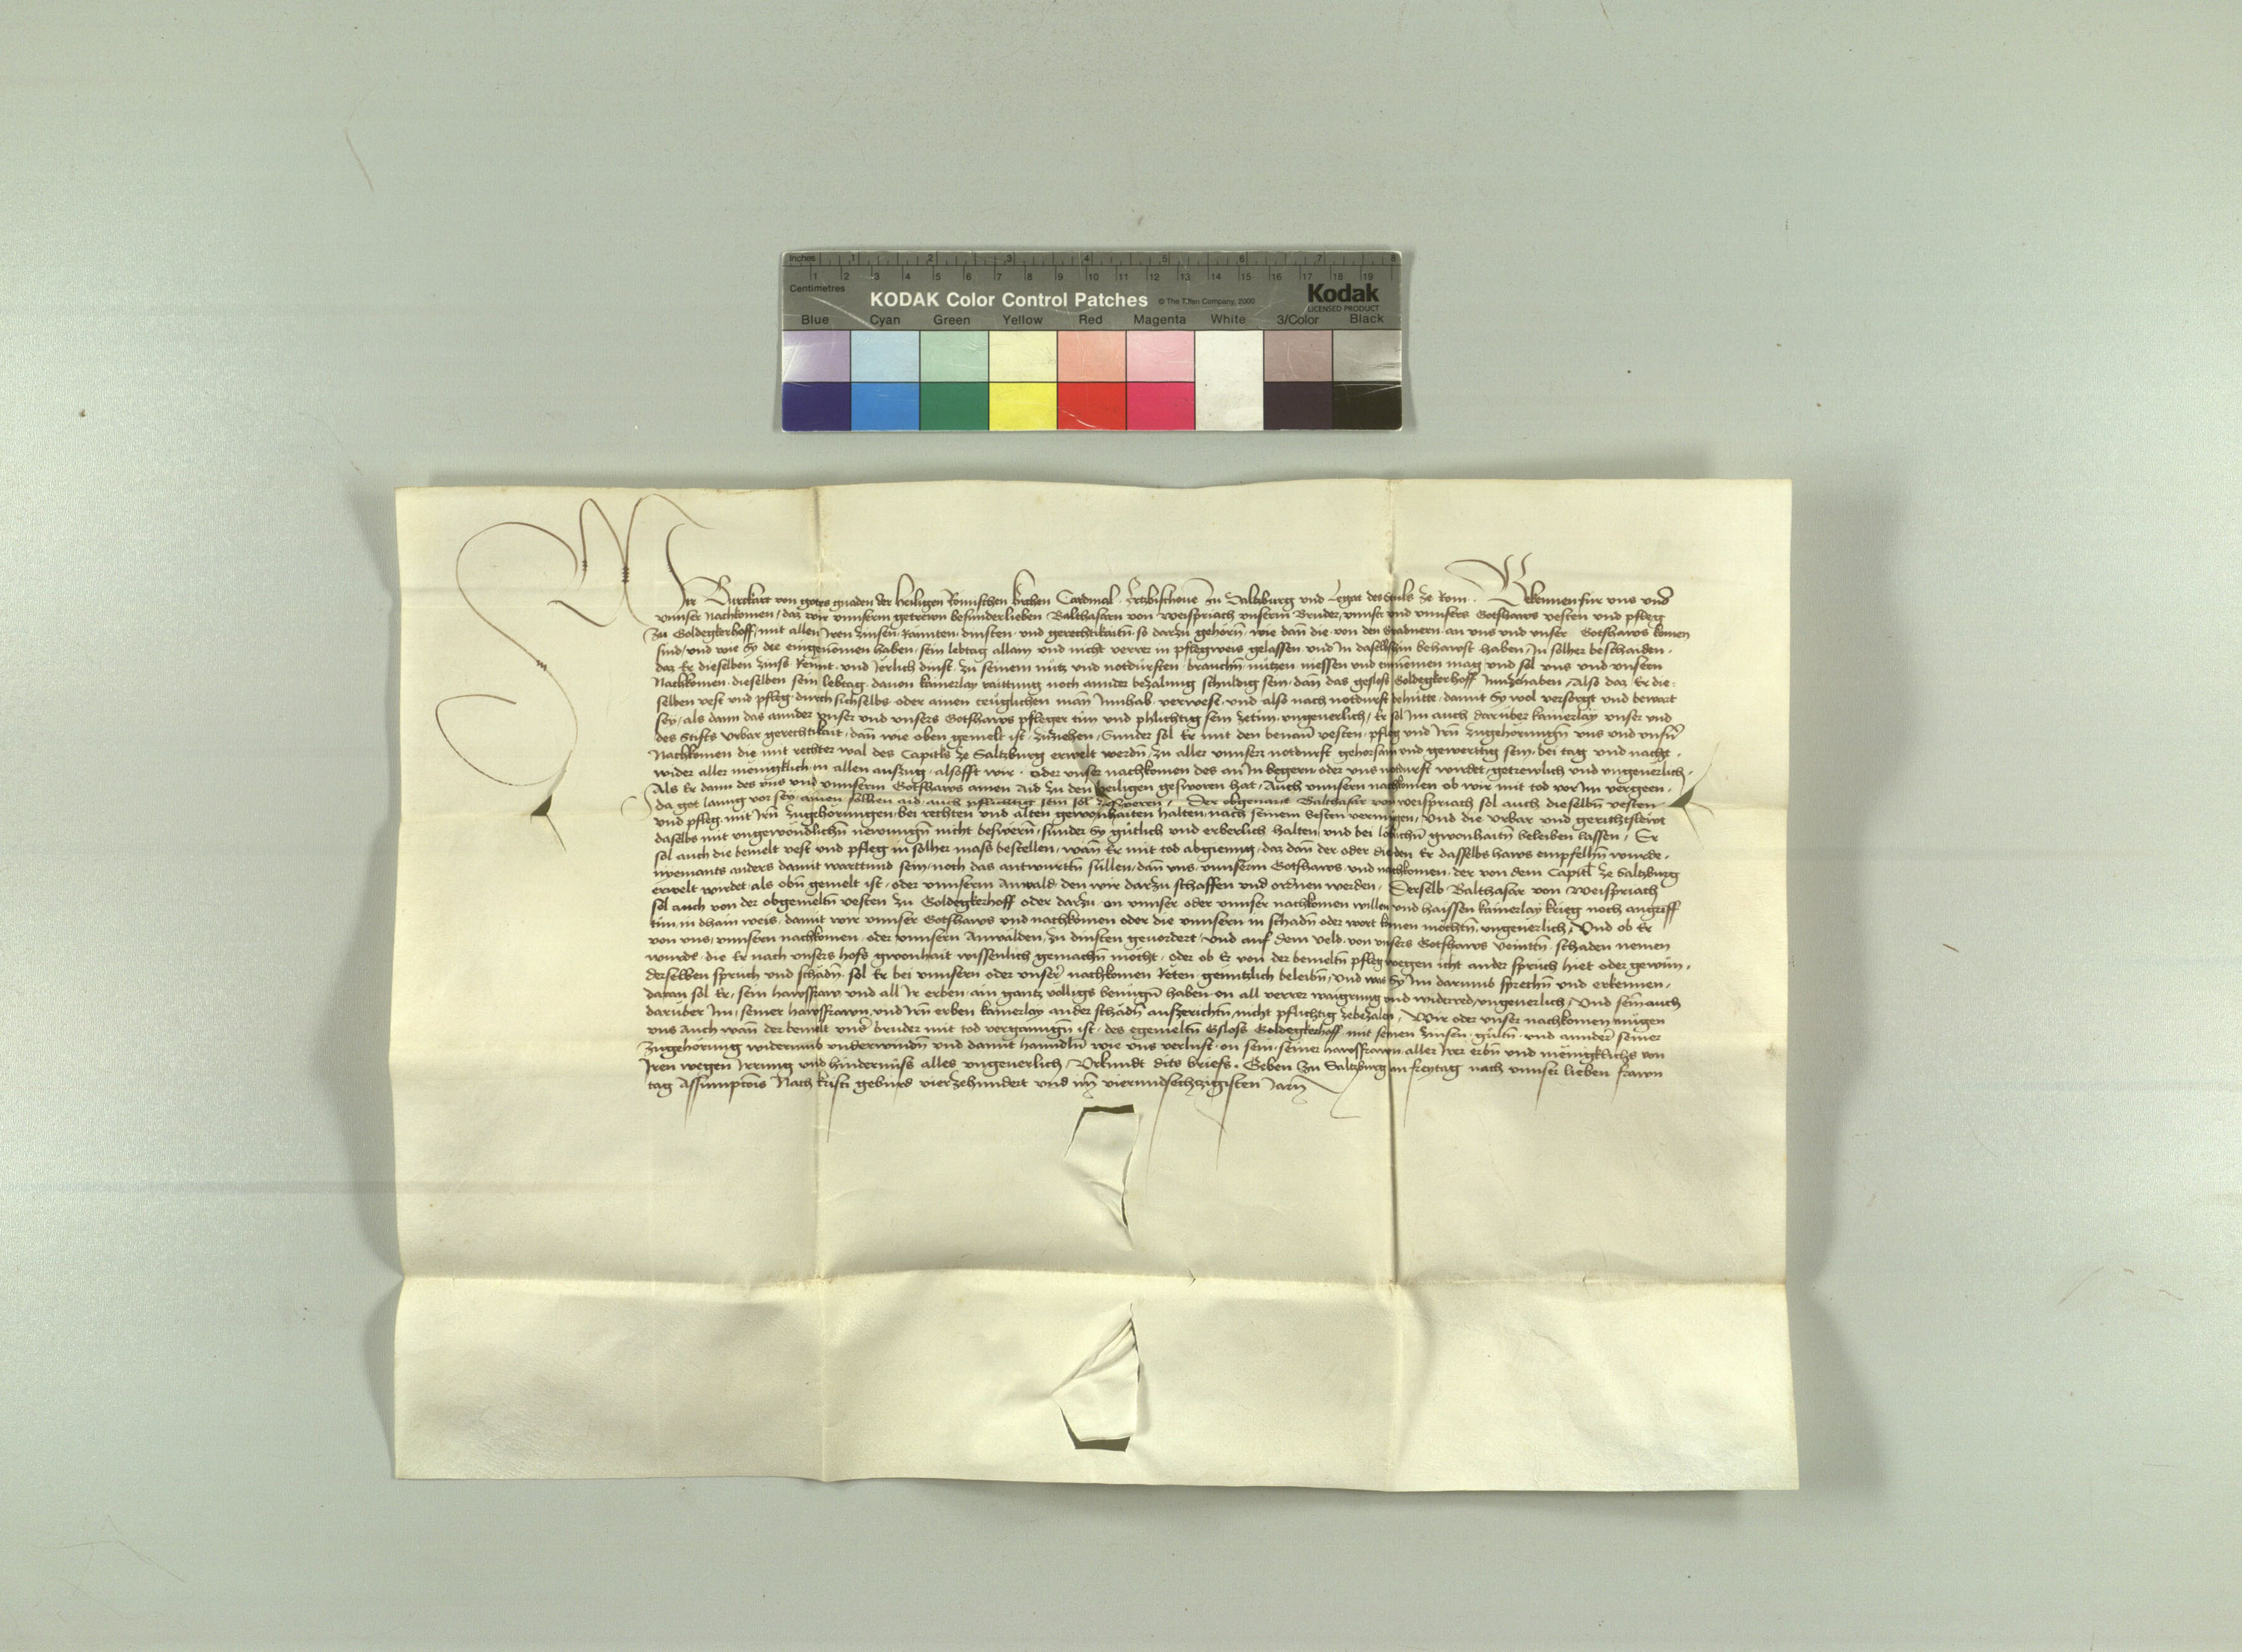 Inches 1 2 3 4 5 6 7 8
1 2 3 4 5 6 7 8 9 10 11 12 13 14 15 16 17 18 19
Centimetres
KODAK Color Control Patches © The Tiffen Company, 2000 Kodak
LICENSED PRODUCT
Blue Cyan Green Yellow Red Magenta White 3/Color Black
Wir Burckart von gotes gnaden der heiligen Römischen kirchen Cardinal Ertzbischoue zu Saltzburg und Legat des stuls ze Rom. Bekennen für uns und
unnser Nachkomen, daz wir unnserm getrewn besunderlieben Balthasarn von Weispriach unserm Bruder, unnser und unnsers Gotshaws vesten und pfleg
zu Goldegkerhoff, mit allen Iren zinsen, Rännten, dinsten und gerechtikaitn so darzu gehörn, wie dan die von den Gradnern an uns und unser Gotshaws komen
sind, und wie Sy die eingenomen haben, sein lebtag allain und nicht verrer in pflegweis gelassen, und In daselbshin behawst haben, In solher beschaiden,
daz Er dieselben zinse Rennt und Jerlich dinst, zu seinem nutz und notdurften brauchn nützen niessen und einnemen mag und sol uns und unsern
Nachkomen dieselben sein lebtag, dauon kainerlay raittung noch annder bezalung schuldig sein, dan das gesloss Goldegkerhoff Innzehaben, Also daz Er die-
selben vest und pfleg durch sichselbs oder ainen tröglichen man Innhab verwese, und also nach notdurft behütte, damit Sy wol versorgt und bewart
sey, als dann das annder unser und unsers Gotshaws pfleger tun und phlichtig sein zetun ungeuerlich, Er sol Im auch darüber kainerlay unser und
des Stifts Urbar gerechtikait, dan wie oben gemelt ist, zuziehen, Sunder sol Er mit den benan vesten, pfleg und Irn zugehorungn uns und unsern
Nachkomen die mit rechter wal des Capitls ze Saltzburg erwelt werdn, zu aller unnser notdurft gehorsam und gewerttig sein, bei tag und nacht,
wider aller mënigklich in allen auszug, alsofft wir oder unser nachkomen des an In begern oder uns notdurft wirdet, getrewlich und ungeuerlich.
Als Er dann des uns und unnserm Gotshaws ainen Aid zu den heiligen gesworen hat, Auch unnsern nachkomen ob wir mit tod vor Im vergeen,
da got lanng vor sey, ainen solhen aid auch pflichtig sein sol zesweren, Der obgenant Balthasar von Weispriach sol auch dieselbn vesten
und pfleg mit Irn zugehörungen bei rechten und alten gewonhaiten halten, nach seinem besten vermügen, Und die Urbar und gerichtsleut
daselbs mit ungewöndlichn newungn nicht beswern, sunder Sy gütlich und erberlich halten, und bei löblichn gwonhaitn beleiben lassen, Er
sol auch die bemelt vest und pfleg in solher mass bestellen, wan Er mit tod abgieng, daz dan der oder die den Er dasselbs haws empfelhn wurde,
nyemants anders damit warttund sein, noch das antwurttn süllen, dan uns, unnserm Gotshaws und nachkomen, der von dem Capitl ze Saltzburg
erwelt wirdet, als obn gemelt ist, oder unnserm Anwald, den wir darzu schaffen und ordnen werden, Derselb Balthasar von Weispriach
sol auch von der obgemeltn vesten zu Goldegkerhoff oder darzu on unnser oder unnser nachkomen willen und haissen kainerlay krieg noch angriff
tun, in dhain weis, damit wir unnser Gotshaws und nachkomen oder die unnsern in schadn oder wort komen möchtn, ungeuerlich, Und ob Er
von uns, unnsern nachkomen, oder unnsern Anwälden, zu dinsten geuordert, und auf dem veld von unsers Gotshaws veinttn schaden nemen
wurde, die Er nach unsers hofs gwonhait wissenlich gemachn möcht, oder ob Er von der bemeltn pfleg wegen icht ander sprüch hiet oder gewün,
derselben spruch und schädn, sol Er bei unnsern oder unser nachkomen Reten genntzlich beleibn, und was Sy Im darumb sprechn und erkennen,
daran sol Er, sein hawsfraw und all Ir erben ain gantz völligs benügn haben, on all verrer waigrung und widerred, ungeuerlich, Und sein auch
darüber Im, seiner hawsfrawn, und Irn erben kainerlay ander schädn auszerichtn, nicht pflichtig zebezalen, Wir oder unser nachkomen mügen
uns auch wan der bemelt uns bruder mit tod vergangn ist, des egemeltn Gsloss Goldegkerhoff mit seinen zinsen, gültn und annder seiner
zugehörung widerumb underwindn und damit hanndln wie uns verlust, on sein, seiner hawsfrawn aller Irer erbn und mënigklichs von
Iren wegen Irrung und hindernüss alles ungeuerlich, Urkundt dits briefs. Geben zu Saltzburg an freytag nach unnser lieben frawn
tag Assumpcionis Nach kristi geburd vierzehundert und im vierundsechzigisten Jarn